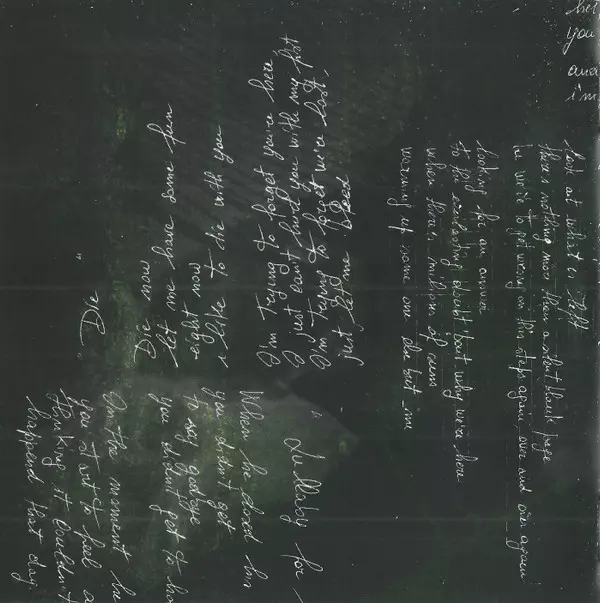 "Die"
Die now
let me have some fun
right now
i like to die with you
I'm trying to forget you're here
I just can't hurt you with my fist
I'm trying to forget we're lost
just let me bleed
"Lullaby for
When he closed his
you didn't get
to say goodbye
you didn't get to
In the moment he
you start to feel a
thinking it couldn't
happend that day
look at what is left
there's nothing more than a blank page
we're to get wrong on his steps again, over and over again
looking for an answer
to the everlasting doubt bout why we're here
when there's milions of suns
warming up some one else but me
you
and
i'm